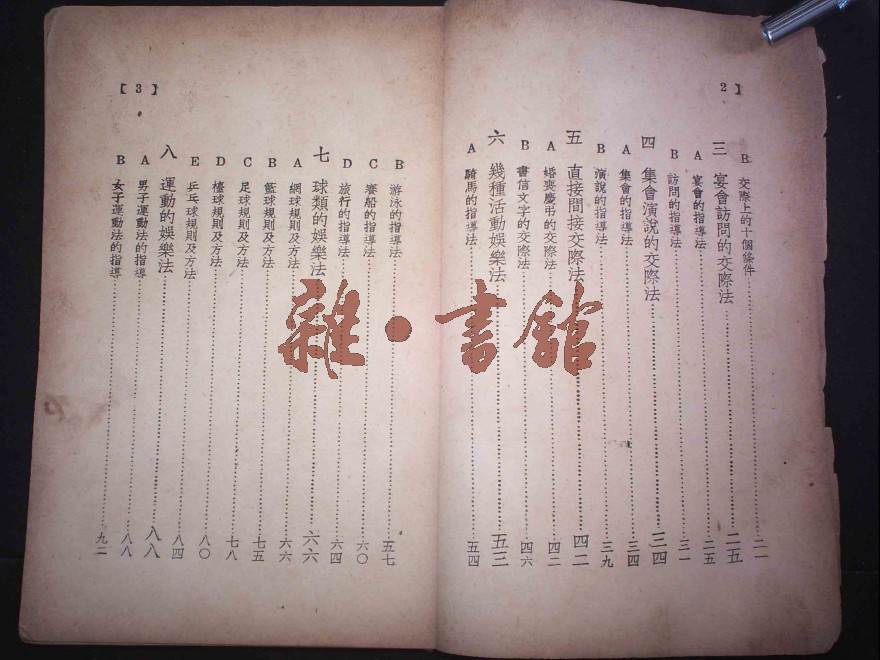 2】
B 交際上的十個條件……二一
三 宴會訪問的交際法……二五
A 宴會的指導法……二五
B 訪問的指導法……三一
四 集會演說的交際法……三四
A 集會的指導法……三四
B 演說的指導法……三九
五 直接間接交際法……四二
A 婚喪慶弔的交際法……四二
B 書信文字的交際法……四六
六 幾種活動娛樂法……五三
A 騎馬的指導法……五四
【3】
B 游泳的指導法……五七
C 賽船的指導法……六〇
D 旅行的指導法……六四
七 球類的娛樂法……六六
A 網球規則及方法……六六
B 籃球規則及方法……七五
C 足球規則及方法……七八
D 檯球規則及方法……八〇
E 乒乓球規則及方法……八四
八 運動的娛樂法……八八
A 男子運動法的指導……八八
B 女子運動法的指導……九二
雜·書館